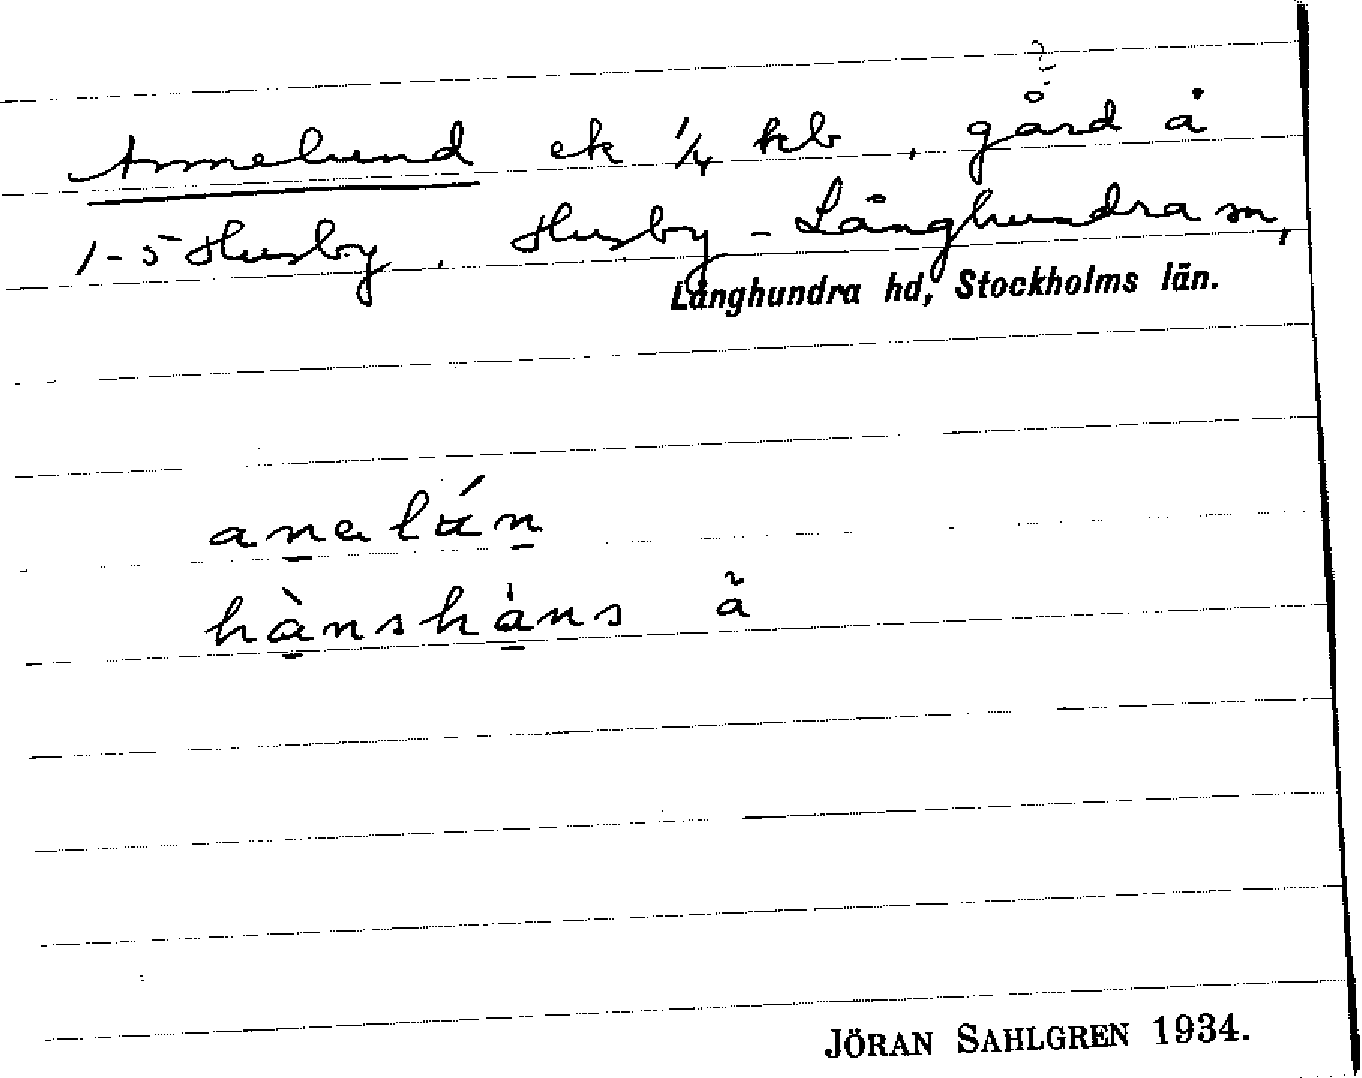 Annelund ek 1/4 kb, gård å
1-5 Husby. Husby-Långhundra sn,
Långhundra hd, Stockholms län.
analún
hànshàns ã
JÖRAN SAHLGREN 1934.